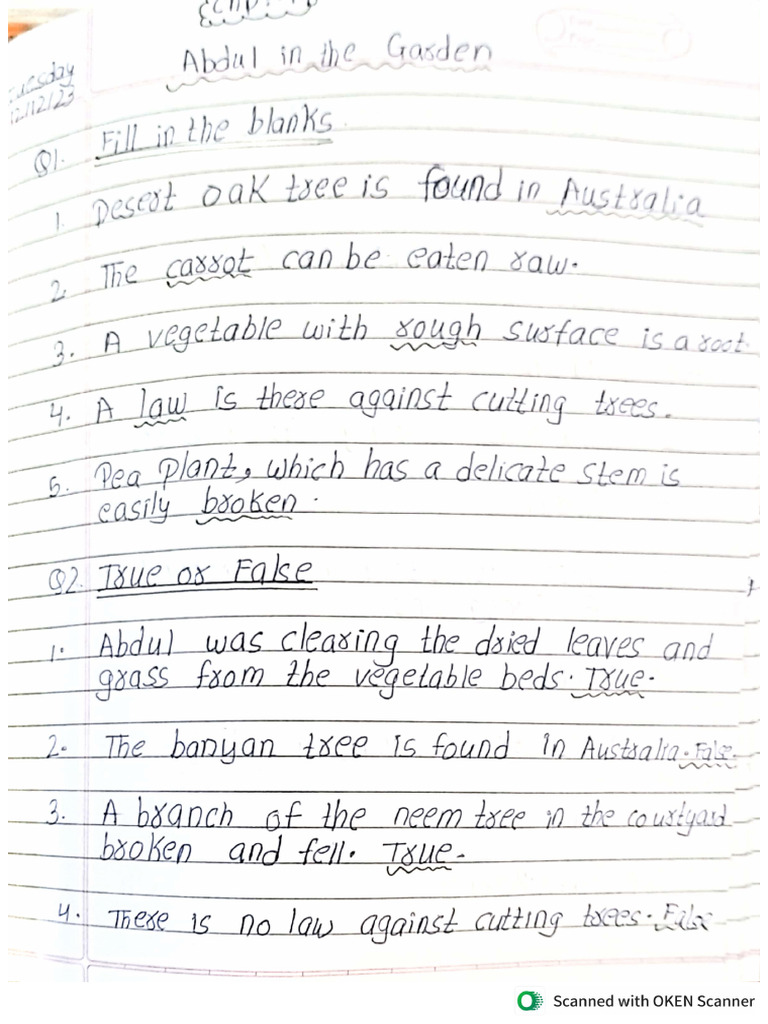 Abdul in the Garden
Q1. Fill in the blanks
1. Desert oak tree is found in Australia
2. The carrot can be eaten raw.
3. A vegetable with rough surface is a root.
4. A law is there against cutting trees.
5. Pea plant, which has a delicate stem is
easily broken.
Q2. True or False
1. Abdul was clearing the dried leaves and
grass from the vegetable beds. True.
2. The banyan tree is found in Australia. False.
3. A branch of the neem tree in the courtyard
broken and fell. True.
4. There is no law against cutting trees. False
Scanned with OKEN Scanner